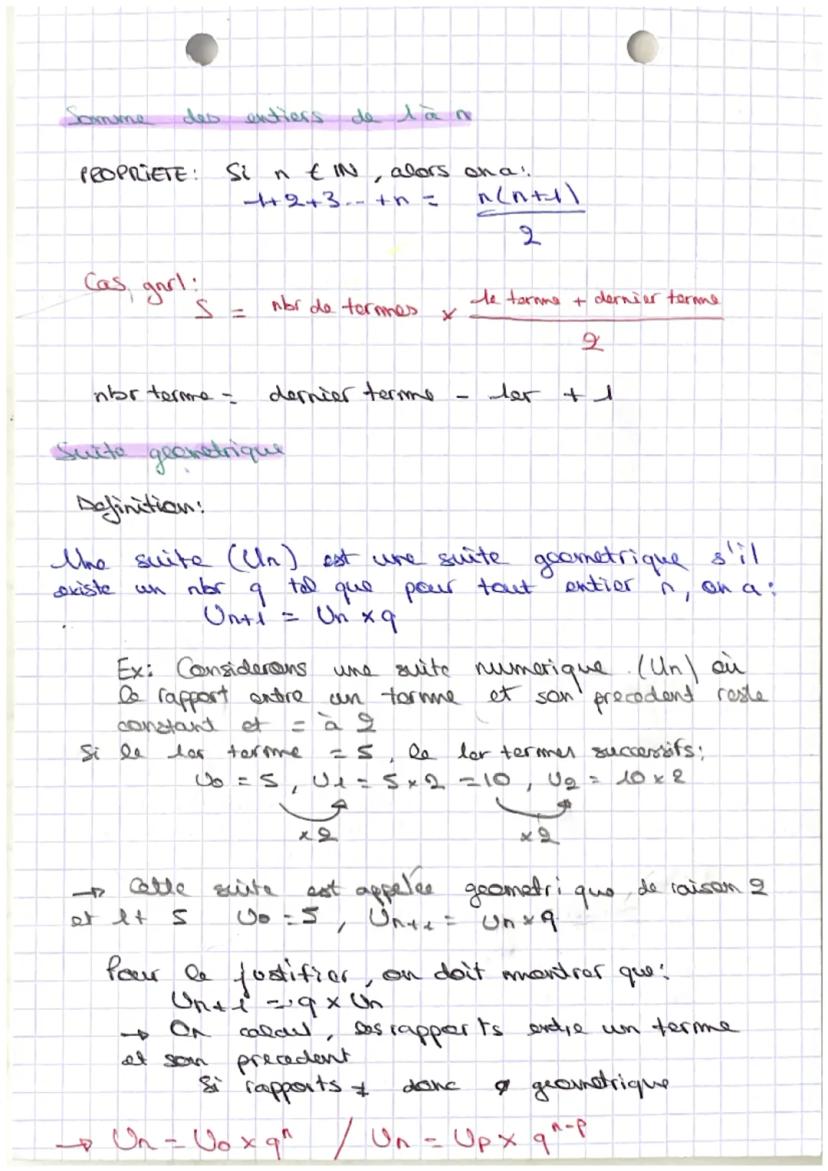 Somme des entiers de 1 à n
PROPRIETE: Si n ∈ IN, alors on a:
1+2+3... +n = n(n+1)/2
Cas gnrl:
S = nbr de termes x (1e terme + dernier terme)/2
nbr terme = dernier terme - 1er + 1
Suite geometrique
Definition:
Une suite (Un) est une suite geometrique s'il
existe un nbr q tel que pour tout entier n, on a:
Un+1 = Un x q
Ex: Considerons une suite numerique (Un) où
le rapport entre un terme et son precedent reste
constant et = à 2
Si le 1er terme = 5, le 1er termes successifs:
U0 = 5, U1 = 5 x 2 = 10, U2 = 10 x 2
x2 x2
→ Cette suite est appelée geometrique de raison 2
et 1t 5 U0 = 5, Un+1 = Un x q
Pour le justifier, on doit montrer que:
Un+1 = q x Un
→ On calcul, les rapports entre un terme
et son precedent
Si rapports ≠ donc geometrique
→ Un = U0 x qⁿ / Un = Up x qⁿ⁻ᵖ